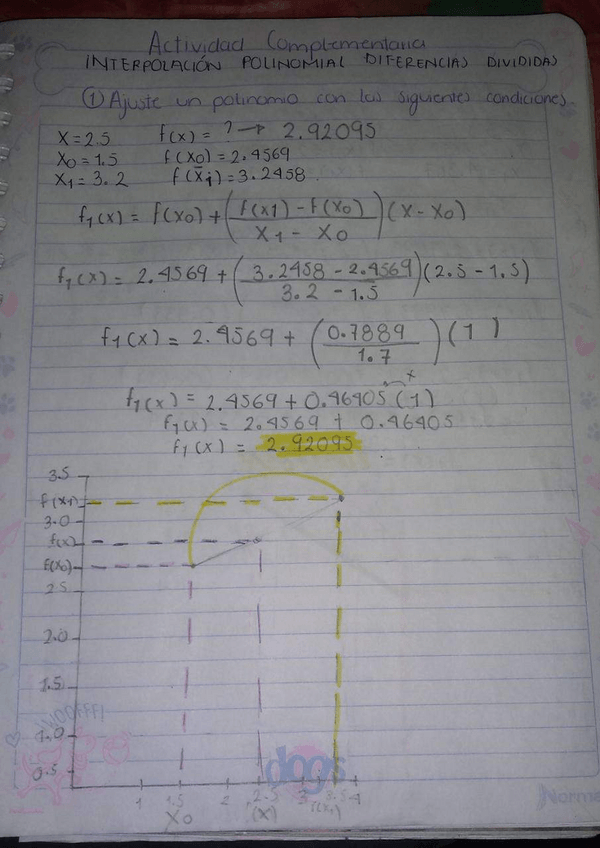 Actividad Complementaria
INTERPOLACIÓN POLINOMIAL DIFERENCIAS DIVIDIDAS
① Ajuste un polinomio con las siguientes condiciones.
X = 2.5 f(x) = ? → 2.92095
X0 = 1.5 f(X0) = 2.4569
X1 = 3.2 f(X1) = 3.2458
f1(x) = f(x0) + (f(x1) - f(x0) / X1 - X0) (X - X0)
f1(x) = 2.4569 + (3.2458 - 2.4569 / 3.2 - 1.5) (2.5 - 1.5)
f1(x) = 2.4569 + (0.7889 / 1.7) (1)
x
f1(x) = 2.4569 + 0.46405 (1)
f1(x) = 2.4569 + 0.46405
f1(x) = 2.92095
3.5
f(x1)
3.0
f(x)
f(x0)
2.5
2.0
1.5
WOOFFF!
1.0
0.5
dogs
1 1.5 2 2.5 3 3.5 4
X0 (X) f(x1)
Norma